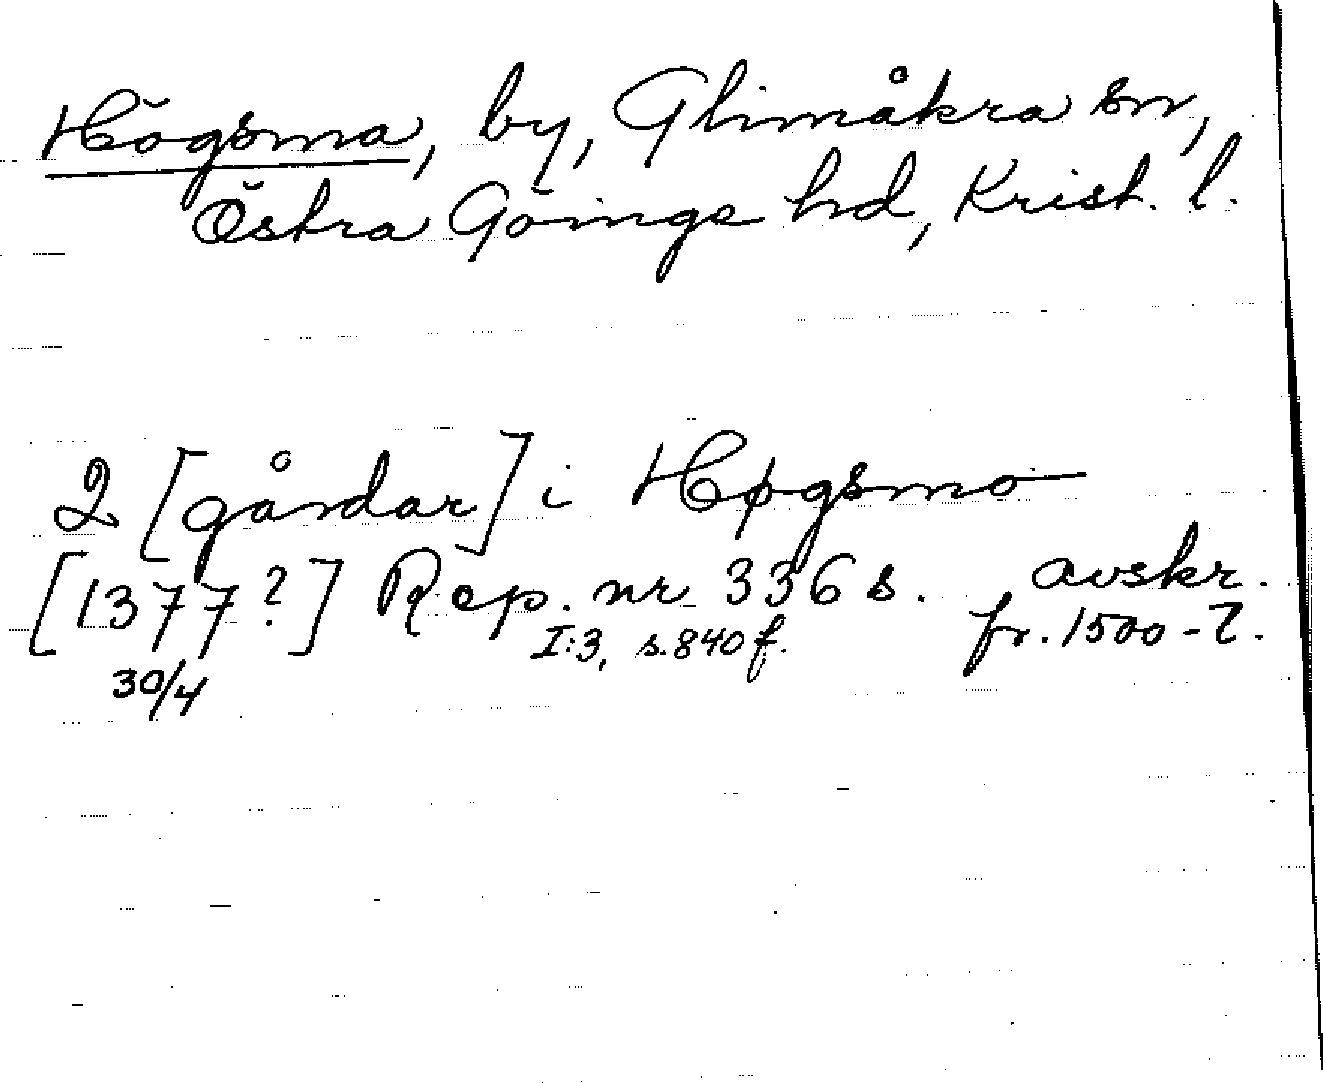 Högsma, by, Glimåkra sn,
Östra Göinge hd, Krist. l.
2 [gårdar] i Høgsmo
[1377?] Rep. nr 336 s. avskr.
30/4 I:3, s. 840 f. fr. 1500-t.